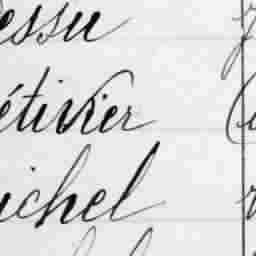 essu
étivier
ichel